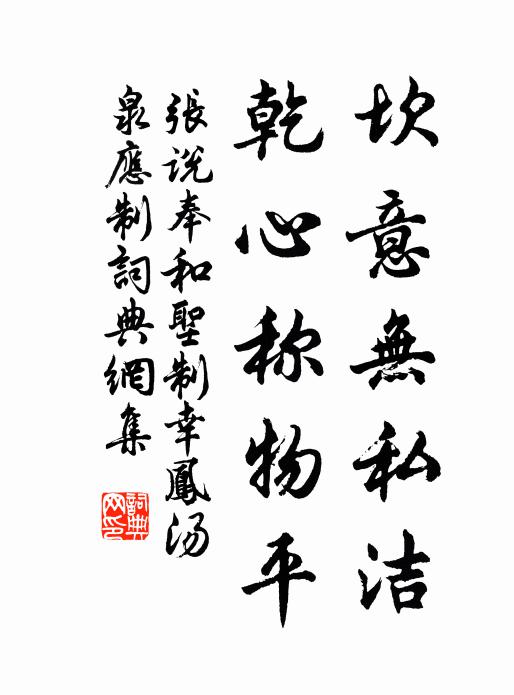 坎意無私洁
乾心称物平
張説奉和聖制幸鳳湯
泉應制詞典網集
詞典
网印